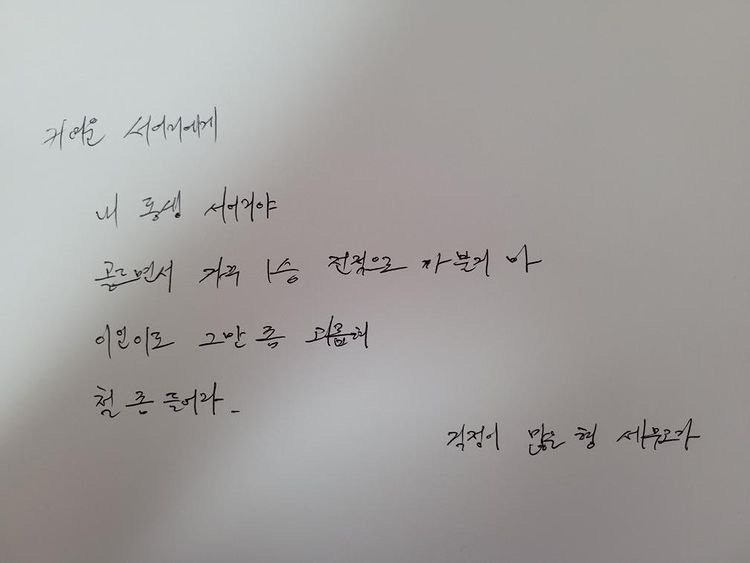 귀여운 서어리에게
내 동생 서어리야
골드면서 자꾸 1승 전적으로 까불지 마
이인이도 그만 좀 괴롭혀
철 좀 들어라_
걱정이 많은 형